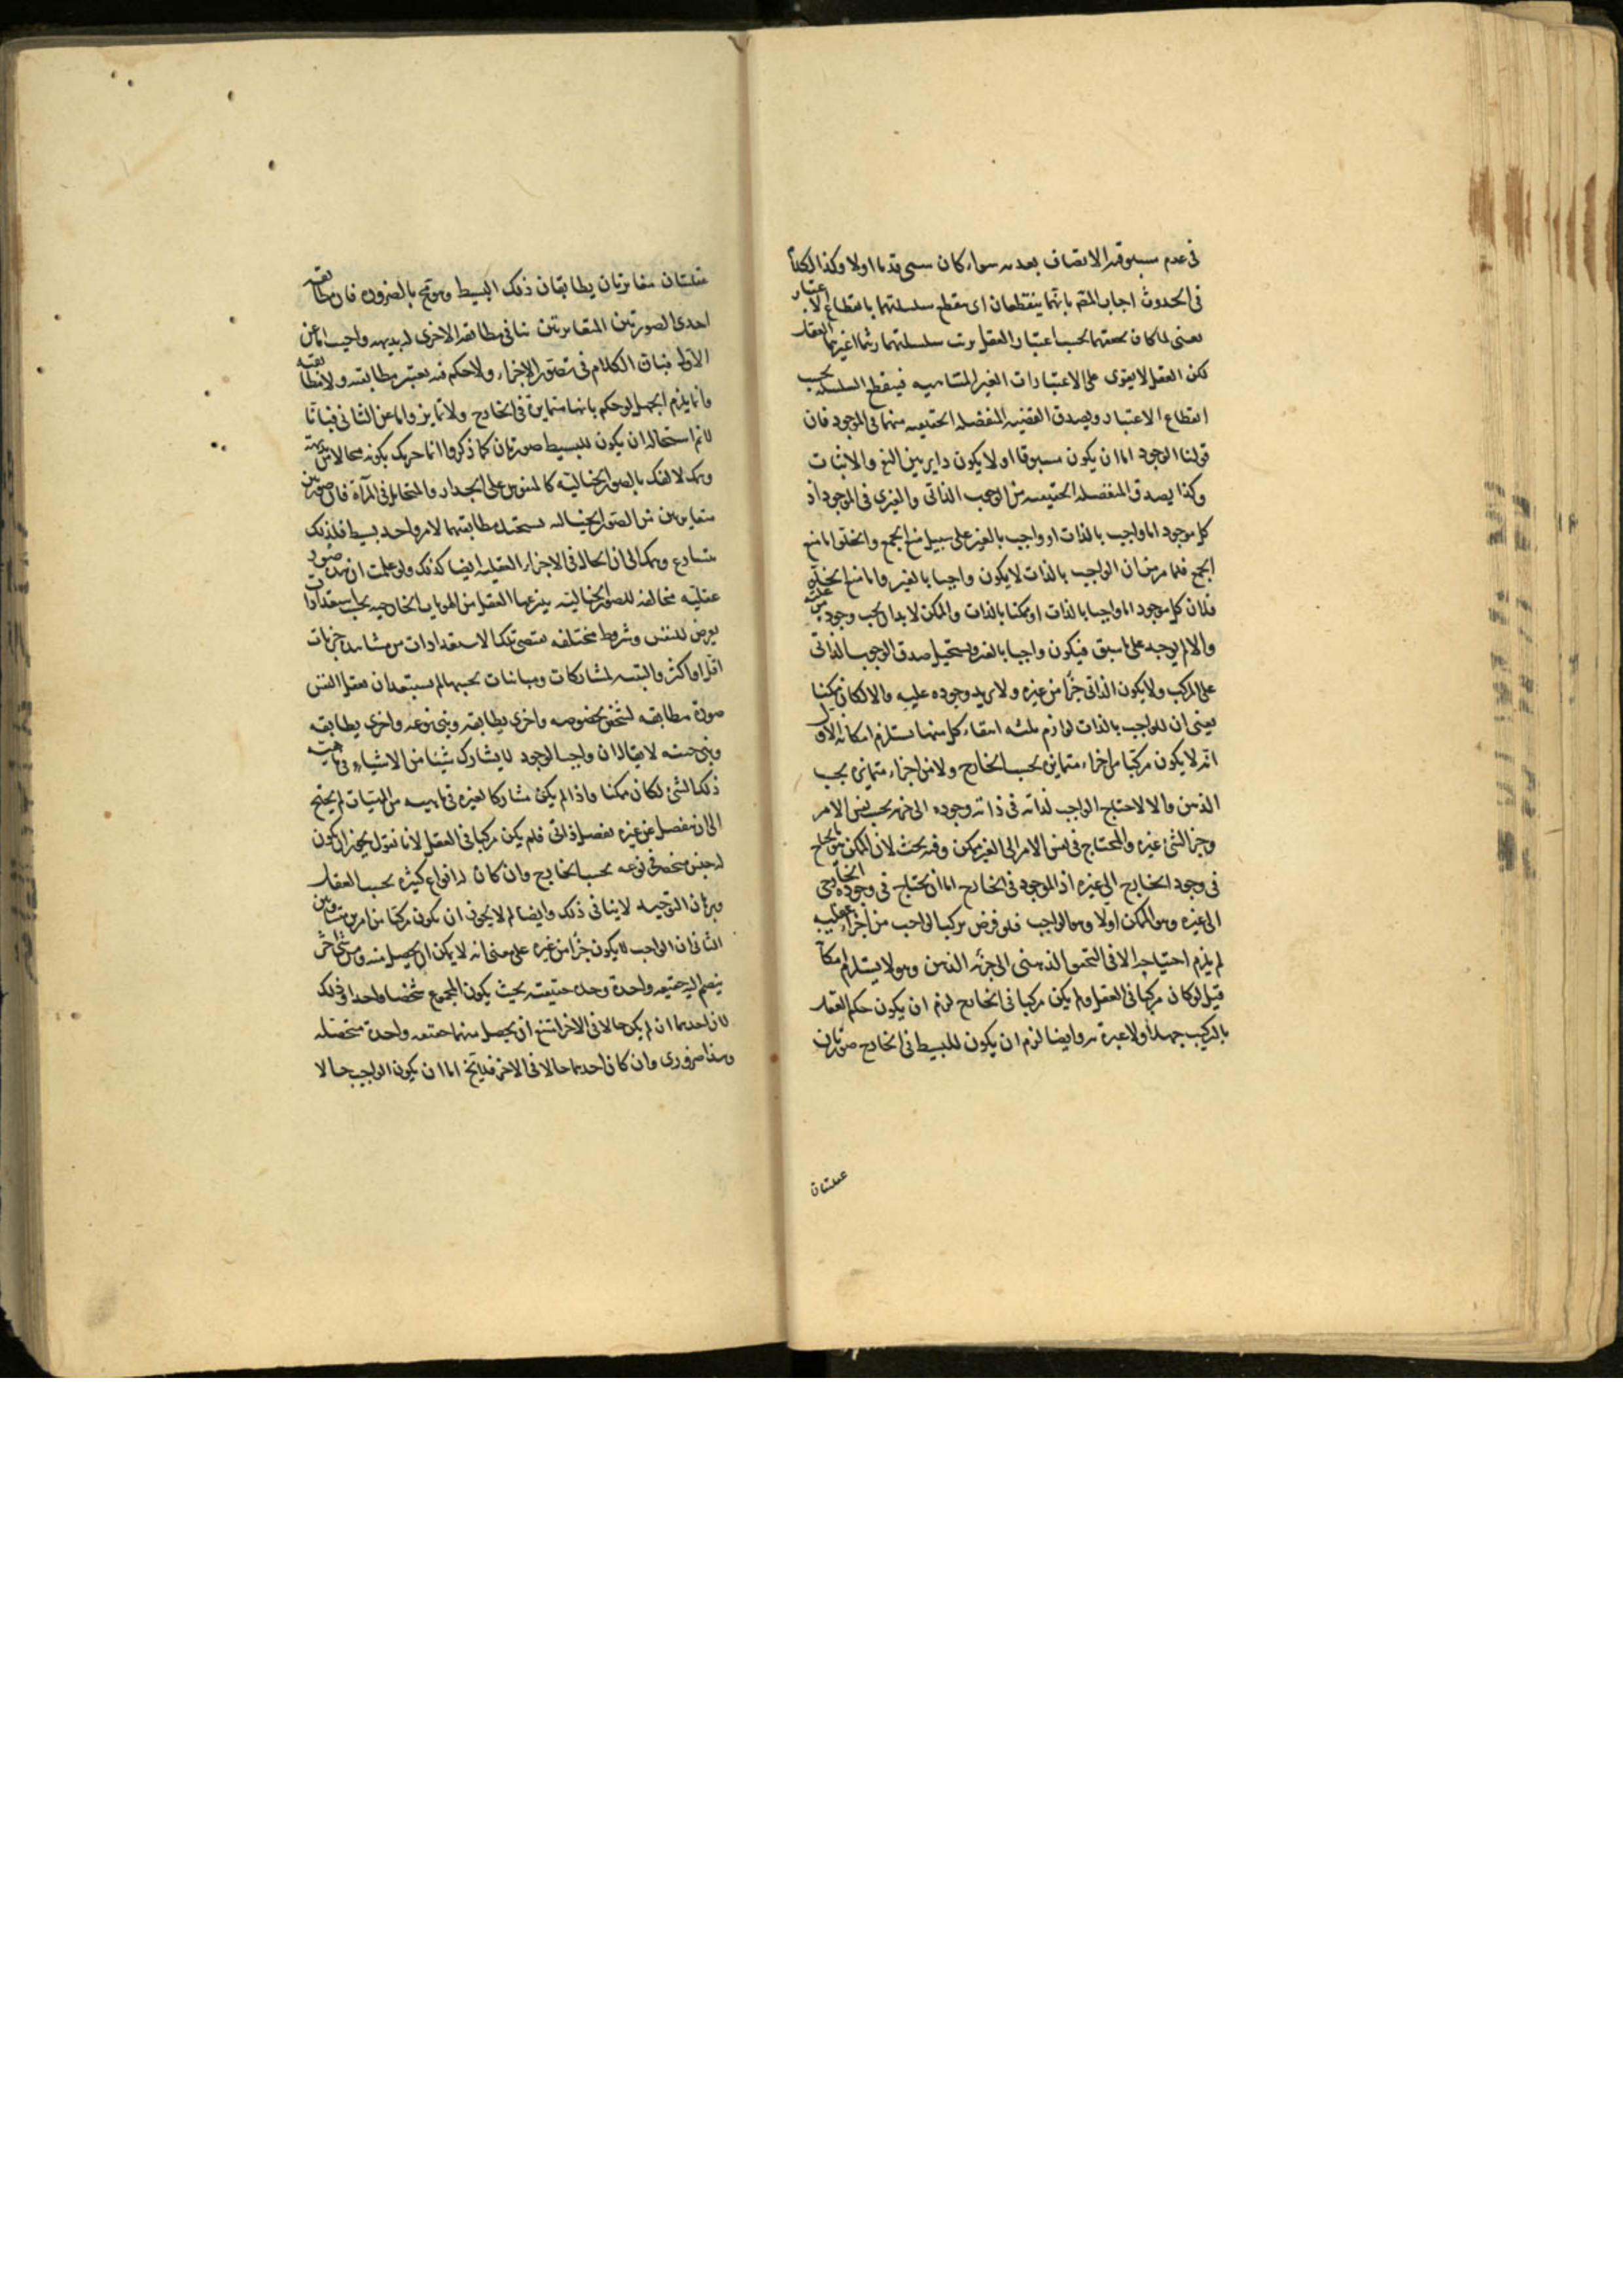 فى عدم مسبوقية الاتصاف بعدمه سواء كان سمى قدما اولا وكذا الكلام
فى الحدوث اجاب المص بانهما ينقطعان اى ينقطع سلسلتهما بانقطاع الاعتبار
يعنى لما كان تحققهما بحسب اعتبار العقل يرتب سلسلتهما العقل
لكن العقل لا يقوى على الاعتبارات الغير المتناهيه فينقطع السلسله بحسب
انقطاع الاعتبار ويصدق القضيه المنفصله الحقيقيه منهما فى الموجود فان
قولنا الموجود اما ان يكون مسبوقا او لا يكون داير بين النفى والاثبات
وكذا يصدق المنفصله الحقيقيه من الوجوب الذاتى والغيرى فى الموجود اذ
كل موجود اما واجب بالذات او واجب بالغير على سبيل منع الجمع والخلو اما منع
الجمع فلما مر من ان الواجب بالذات لا يكون واجبا بالغير واما منع الخلو
فلان كل موجود اما واجب بالذات او ممكنا بالذات والممكن لا بد ان يجب وجوده من علته
والا لم يوجد على ما سبق فيكون واجبا بالغير ويستحيل صدق الوجوب الذاتى
على المركب ولا يكون الذاتى جزأ من غيره ولا يزيد وجوده عليه والا لكان ممكنا
يعنى ان للواجب بالذات لوازم ثلثه انتفاء كل منها يستلزم امكانه الاول
انه لا يكون مركبا من اجزاء متمايزه بحسب الخارج ولا من اجزاء متمايزه بحسب
الذهن والا لاحتاج الواجب لذاته فى ذاته ووجوده الى جزئه بحسب نفس الامر
وجزء الشئ غيره والمحتاج فى نفس الامر الى الغير ممكن وفيه بحث لان الممكن ما يحتاج
فى وجود الخارج الى غيره اذ الموجود فى الخارج اما ان يحتاج فى وجوده الخارجى
الى غيره وهو الممكن اولا وهو الواجب فلو فرض تركب الواجب من اجزاء عقليه
لم يلزم احتياجه الا فى التحقق الذهنى الى جزئه الذهنى وهو لا يستلزم امكانا
قيل لو كان مركبا فى العقل ولم يكن مركبا فى الخارج لزم ان يكون حكم العقل
بالتركيب جهلا ولا عبرة به وايضا لزم ان يكون للبسيط فى الخارج صورتان
عقليتان
عقليتان متغايرتان يطابقان ذلك البسيط وهو مح بالضروره فان مطابقه
احدى الصورتين المتغايرتين تنافى مطابقه الاخرى له بديهه واجيب اما عن
الاول فبان الكلام فى تصور الاجزاء ولا حكم فيه يعتبر مطابقته ولا مطابقته
وانما يلزم الجهل لو حكم بانها متمايزة فى الخارج ولا تمايز واما عن الثانى فبانا
لانم استحاله ان يكون للبسيط صورتان كما ذكروا انما حرك بكونه محالا بديهة
الفك بالصور الخياليه كالمنقوش على الجدار والمتخايل فى المرآة فان صورتين
متغايرتين من الصور الخياليه يستحيل مطابقتهما لامر واحد بسيط فلذلك
الى ان الحال فى الاجزاء العقليه ايضا كذلك ولو علمت ان هذه صور
عقليه مخالفه للصور الخياليه ينتزعها العقل من الهويات الخارجيه بحسب استعدادات
يعرض للنفس وشروط مختلفه تقتضى تلك الاستعدادات من مشاهده جزئيات
اقل او اكثر والتنبه لمشاركات ومباينات بحسبها لم يستبعد ان يعقل النفس
صورة مطابقه لشخص بخصوصه واخرى يطابقه وبنى نوعه واخرى يطابقه
وبنى جنسه لا يقال ان واجب الوجود لا يشارك شيئا من الاشياء فى ماهيته
ذلك الشئ لكان ممكنا واذا لم يكن مشاركا لغيره فى ماهيه من الماهيات لم يحتج
الى ان ينفصل عن غيره بفصل ذاتى فلم يكن مركبا فى العقل لانا نقول يجوز ان يكون
له جنس منحصر فى نوعه بحسب الخارج وان كان له انواع كثيره بحسب العقل
وبرهان التوحيد لا ينافى ذلك وايضا لم لا يجوز ان يكون مركبا من امرين متساويين
الثانى ان الواجب لا يكون جزأ من غيره على معنى انه لا يمكن ان يحصل منه ومن شئ اخر
ينضم اليه حقيقه واحدة وحدة حقيقيه بحيث يكون المجموع شخصا واحدا وذلك
لان احدهما ان لم يكن حالا فى الاخر امتنع ان يحصل منهما حقيقه واحدة متحصله
وهذا ضرورى وان كان احدهما حالا فى الاخر فنقول ح اما ان يكون الواجب حالا